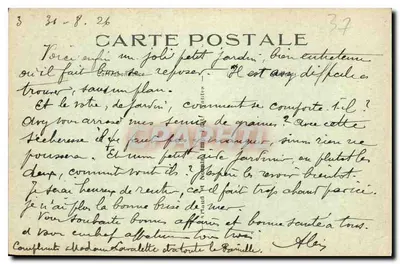 3 31-8-26 37
CARTE POSTALE
Voici enfin un joli petit jardin, bien entretenu
où il fait bon se reposer. Il est assez difficile a
trouver, sans un plan.
Et le votre, de jardin, comment se comporte t-il?
Avez vous arrosé mes semis de graines? Avec cette
sécheresse il ne faut pas manquer, sinon rien ne
poussera. Et mon petit aide jardinier, ou plutot les
deux, comment vont ils? J'espère le revoir bientot.
Je serai heureux de rentrer, car il fait trop chaud par ici.
je n'ai plus la bonne brise de mer.
Vous souhaite bonnes affaires et bonne santé a tous.
et vous embrasse
Compliments Madame Lavalette et a toute la famille. Alex